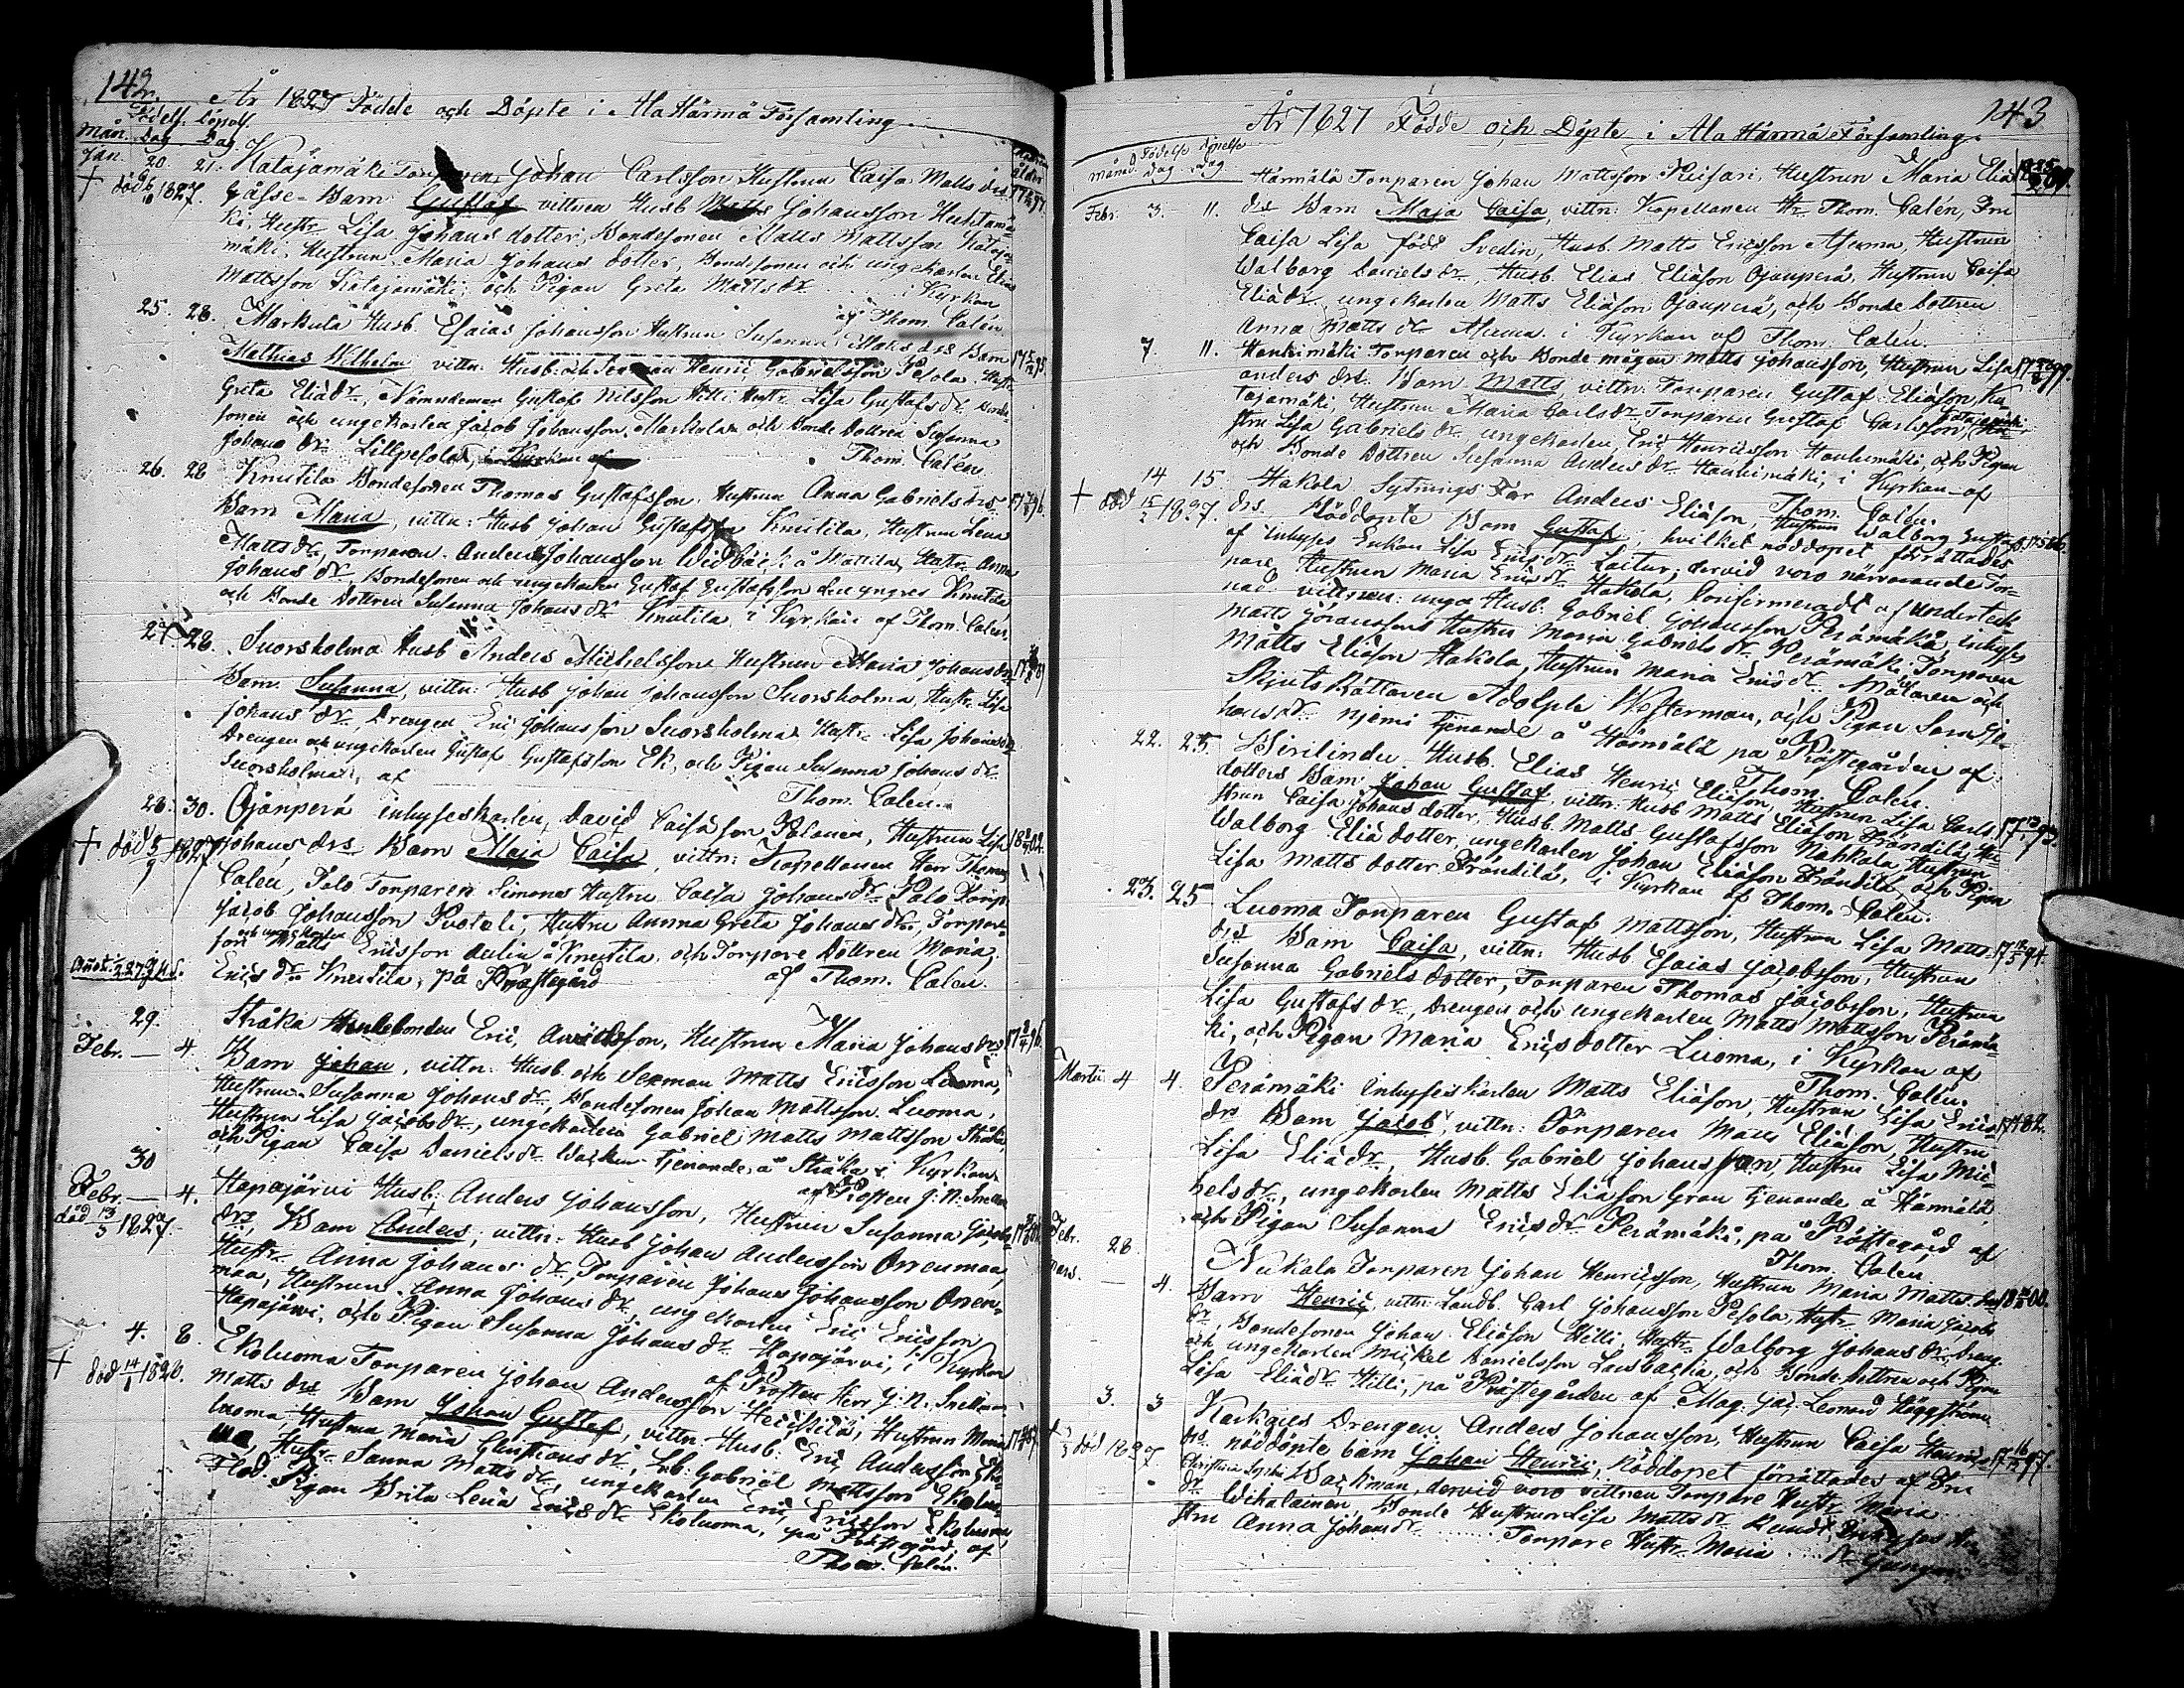 142.
År 1827 Födde och Döpte i Ala Härmä Församling
Födels. Döpels.
Mån. Dag Dag
Jan. 20. 21. Katajamäki Torparen Johan Carlsson Hustrun Caisa Matts drs
† död 1827. Gåsse-Barn Gustaf vittnen Husb Matts Johansson Huhtamä
ki, Hustr. Lisa Johans dotter, Bondesonen Matts Mattsson Kataja
mäki, Hustrun Maria Johans dotter, Bondesonen och ungekarlen Elias
Mattsson Katajamäki, och Pigan Greta Matts dr i Kyrkan
af Thom. Calén.
25. 28. Markula Husb. Esaias Johansson Hustrun Susanna Matts drs Barn
Mathias Wilhelm vittn: Husb. och Sexman Henric Gabrielsson Pesola Hustr.
Greta Eliädr, Nämndeman Gustaf Nilsson Hilli Hustr. Lisa Gustafs dr. Bonde-
sonen och ungekarlen Jacob Johansson Markula och Bonde Dottren Susanna
Johans dr. Lillpesola, i Kyrkan af Thom. Calén
26. 28 Knutila Bondesonen Thomas Gustafsson, Hustrun Anna Gabriels drs
Barn Maria, vittn: Husb Johan Gustafsson Knutila, Hustrun Lena
Matts dr, Torparen Anders Johansson Widbäck å Mattila, Hustr. Anna
Johans dr, Bondesonen och ungekarlen Gustaf Gustafsson den yngre Knutila
och Bonde Dottren Susanna Johans dr Knutila, i Kyrkan af Thom. Calén.
27. 28. Suorsholma Husb Anders Michelsson Hustrun Maria Johans drs
Barn Susanna, vittn: Husb Johan Johansson Suorsholma, Hustr. Lisa
Johans dr, Drengen Eric Johansson Suorsholma Hustr. Lisa Johans dr
Drengen och ungekarlen Gustaf Gustafsson Ek, och Pigan Susanna Johans dr.
Suorsholma, af Thom. Calén.
28. 30. Ojanperä inhyseskarlen David Caisäson Palanen, Hustrun Lisa
† död 5/9 1827 Johans drs Barn Maja Caisa, vittn: Kapellanen Herr Thomas
Calén, Palo Torparen Simons Hustru Caisa Johans dr. Palo Torp.
Jacob Johansson Puotali, Hustru Anna Greta Johans dr, Torpare
son och ungekarlen Matts Ericsson Aulin å Knutila, och Torpare Dottren Maria
Erics dr Knutila, på Prästegård af Thom. Calén.
29. Stråka Husbonden Eric Andersson, Hustrun Maria Johans drs
Febr. — 4. Barn Johan, vittn: Husb. och Sexman Matts Ericsson Luoma,
Hustrun Susanna Johans dr, Bondesonen Johan Mattsson Luoma,
Hustrun Lisa Jacobs dr, ungekarlen Gabriel Matts Mattsson Stråka,
och Pigan Caisa Daniels dr tjenande å Stråka i Kyrkan
af Prosten J. N. Snellman
30 Hapajärvi Husb. Anders Johansson, Hustrun Susanna Jacobs
Febr. — 4. drs Barn Anders, vittn: Husb Johan Andersson Orrenmaa,
död 13/5 1827. Hustr. Anna Johans dr, Torparen Johan Johansson Orren-
maa, Hustrun Anna Johans dr, ungekarlen Eric Ericsson
Hapajärvi, och Pigan Susanna Johans dr Hapajärvi, i Kyrkan
af Prosten Herr J. N. Snellman
4. 8. Ekoluoma Torparen Johan Andersson Heickilä, Hustrun Maria
† död 1828. Matts drs Barn Johan Gustaf, vittn: Husb. Eric Andersson Eko-
luoma Hustrun Maria dr, Lb: Gabriel Mattsson Ekoluo-
ma, Hustr. Sanna Matts dr ungekarlen Eric Ericsson Ekoluoma
Pigan Brita Lena Erics dr Ekoluoma, på Prästegård, af
Thom. Calén.
143
År 1827 Födde och Döpte i Ala Härmä Församling.
Månad Födelse Dag Döpelse Dag
Härmälä Torparen Johan Mattsson Reisari, Hustrun Maria Eliä
Febr. 3. 11. drs Barn Maja Caisa, vittn: Kapellanen Hr Thom. Calén, Fru
Caisa Lisa född Svedin, Husb. Matts Ericsson Asuma, Hustrun
Walborg Daniels dr, Husb. Elias Eliäson Ojanperä, Hustrun Caisa
Eliädr ungekarlen Matts Eliäson Ojanperä, och Bonde Dottren
Anna Matts dr Asuma i Kyrkan af Thom. Calén.
7. 11. Hankimäki Torparen och Bonde mågen Matts Johansson, Hustrun Lisa
Anders drs Barn Matts, vittn: Torparen Gustaf Eliäson Ka
tajamäki, Hustrun Maria Carls dr Torparen Gustaf Carlsson Katajamäki, Hu-
stru Lisa Gabriels dr ungekarlen Eric Henricsson Hankimäki, och Pigan
och Bonde Dottren Susanna Anders dr Hankimäki, i Kyrkan af
Thom. Calén.
14 15. Hakola Sytnings Far Anders Eliäson, Hustrun Walborg Gustafs
† död 15/2 1827. drs. Nöddöpte Barn Gustaf, hvilket nöddopet förrättades
af Inhyses Enkan Lisa Erics dr Laitur; dervid voro närvarande Tor-
pare Hustrun Maria Erics dr Hakola, Confirmeradt af underteck-
nad vittnen: unga Husb. Gabriel Johansson Perämäki, inhyses
Matts Göranssons Hustru Maria Gabriels dr Perämäki Torparen
Matts Eliäson Hakola, Hustrun Maria Erics dr Målaren och
Skjuts Rättaren Adolph Westerman, och Pigan Sanna Jo-
hans dr Njemi tjenande å Härmälä på Prästegården af
Thom. Calén.
22. 25. Husb. Elias Henric Eliäson, Hustrun Lisa Carls
dotters Barn Johan Gustaf vittn: Husb Matts Eliäson Fråndilä, Hu-
strun Caisa Johans dotter, Husb. Matts Gustafsson Nahkala, Hustrun
Walborg Eliä dotter, ungekarlen Johan Eliäson Fråndilä, och Pigan
Lisa Matts dotter Fråndilä, i Kyrkan af Thom. Calén.
23. 25 Luoma Torparen Gustaf Mattsson, Hustrun Lisa Matts
drs Barn Caisa, vittn: Husb Esaias Jacobsson, Hustrun
Susanna Gabriels dotter, Torparen Thomas Jacobsson, Hustrun
Lisa Gustafs dr, Drengen och ungekarlen Matts Mattsson Perämä-
ki, och Pigan Maria Erics dotter Luoma, i Kyrkan af
Thom. Calén.
Martii 4 4. Perämäki Inhyseskarlen Matts Eliäson, Hustrun Lisa Erics
drs Barn Jacob, vittn: Torparen Matts Eliäson, Hustru
Lisa Eliädr, Husb. Gabriel Johansson, Hustru Lisa Mic-
hels dr, ungekarlen Matts Eliäson Gran tjenande å Härmälä,
och Pigan Susanna Erics dr Perämäki, på Prästegård af
Thom. Calén
Febr. 28 Nukala Torparen Johan Henricsson, Hustrun Maria Matts drs
Mars. — 4. Barn Henric, vittn: Landb. Carl Johansson Pesola, Hustr. Maria Jacobs
dr, Bondesonen Johan Eliäson Hilli Hustr. Walborg Johans dr, Dreng.
och ungekarlen Michel Danielsson, och Bonde dottren och Pigan
Lisa Eliädr Hilli, på Prästegården af Mag. Jac. Leonard Häggström
3. 3 Drengen Anders Johansson, Hustrun Caisa Henrics
† död 1827 drs nöddöpte barn Johan Henric, Nöddopet förrättades af Fru
Christina Sophia Wackman, dervid voro vittnen Torpare Hustr. Maria
dr Wikalainen, Bonde Hustrun Lisa Matts dr Inhyses Hu-
stru Anna Johans dr Torpare Hustr. Maria dr